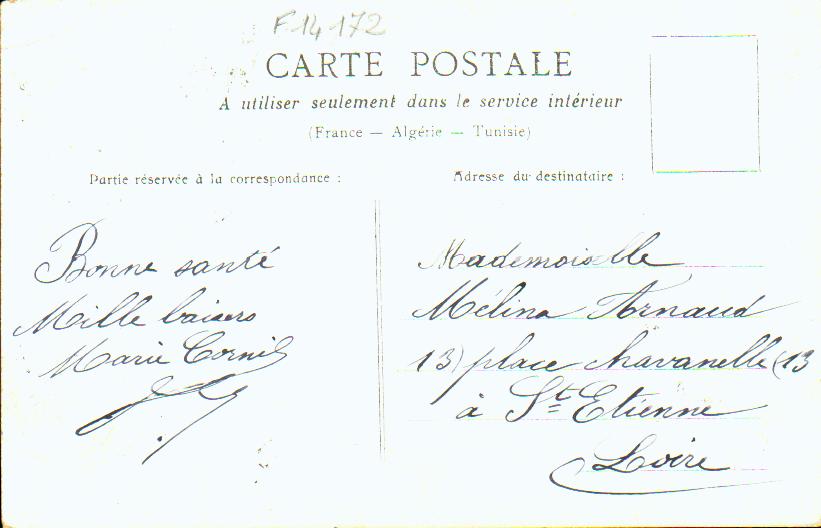 F 14 172
CARTE POSTALE
A utiliser seulement dans le service intérieur
(France — Algérie — Tunisie)
Partie réservée à la correspondance :
Bonne santé
Mille baisers
Marie Cornil
Adresse du destinataire :
Mademoiselle
Mélina Arnaud
13) place chavanelle (13
à St Etienne
Loire